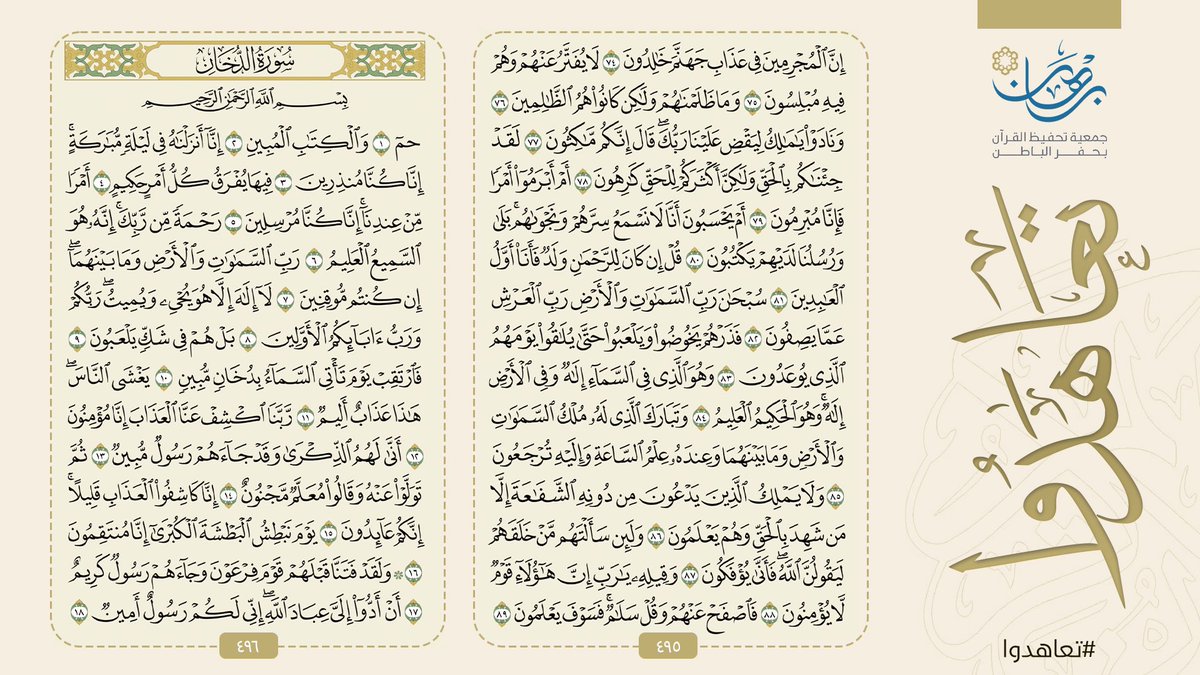 برهان
جمعية تحفيظ القرآن
بحفر الباطن
تعاهدوا
#تعاهدوا
إِنَّ ٱلْمُجْرِمِينَ فِى عَذَابِ جَهَنَّمَ خَٰلِدُونَ ٧٤ لَا يُفَتَّرُ عَنْهُمْ وَهُمْ
فِيهِ مُبْلِسُونَ ٧٥ وَمَا ظَلَمْنَٰهُمْ وَلَٰكِن كَانُوا۟ هُمُ ٱلظَّٰلِمِينَ ٧٦
وَنَادَوْا۟ يَٰمَٰلِكُ لِيَقْضِ عَلَيْنَا رَبُّكَ ۖ قَالَ إِنَّكُم مَّٰكِثُونَ ٧٧ لَقَدْ
جِئْنَٰكُم بِٱلْحَقِّ وَلَٰكِنَّ أَكْثَرَكُمْ لِلْحَقِّ كَٰرِهُونَ ٧٨ أَمْ أَبْرَمُوٓا۟ أَمْرًا
فَإِنَّا مُبْرِمُونَ ٧٩ أَمْ يَحْسَبُونَ أَنَّا لَا نَسْمَعُ سِرَّهُمْ وَنَجْوَىٰهُم ۚ بَلَىٰ
وَرُسُلُنَا لَدَيْهِمْ يَكْتُبُونَ ٨٠ قُلْ إِن كَانَ لِلرَّحْمَٰنِ وَلَدٌ فَأَنَا۠ أَوَّلُ
ٱلْعَٰبِدِينَ ٨١ سُبْحَٰنَ رَبِّ ٱلسَّمَٰوَٰتِ وَٱلْأَرْضِ رَبِّ ٱلْعَرْشِ
عَمَّا يَصِفُونَ ٨٢ فَذَرْهُمْ يَخُوضُوا۟ وَيَلْعَبُوا۟ حَتَّىٰ يُلَٰقُوا۟ يَوْمَهُمُ
ٱلَّذِى يُوعَدُونَ ٨٣ وَهُوَ ٱلَّذِى فِى ٱلسَّمَآءِ إِلَٰهٌ وَفِى ٱلْأَرْضِ
إِلَٰهٌ ۚ وَهُوَ ٱلْحَكِيمُ ٱلْعَلِيمُ ٨٤ وَتَبَارَكَ ٱلَّذِى لَهُۥ مُلْكُ ٱلسَّمَٰوَٰتِ
وَٱلْأَرْضِ وَمَا بَيْنَهُمَا وَعِندَهُۥ عِلْمُ ٱلسَّاعَةِ وَإِلَيْهِ تُرْجَعُونَ
٨٥ وَلَا يَمْلِكُ ٱلَّذِينَ يَدْعُونَ مِن دُونِهِ ٱلشَّفَٰعَةَ إِلَّا
مَن شَهِدَ بِٱلْحَقِّ وَهُمْ يَعْلَمُونَ ٨٦ وَلَئِن سَأَلْتَهُم مَّنْ خَلَقَهُمْ
لَيَقُولُنَّ ٱللَّهُ ۖ فَأَنَّىٰ يُؤْفَكُونَ ٨٧ وَقِيلِهِۦ يَٰرَبِّ إِنَّ هَٰٓؤُلَآءِ قَوْمٌ
لَّا يُؤْمِنُونَ ٨٨ فَٱصْفَحْ عَنْهُمْ وَقُلْ سَلَٰمٌ ۚ فَسَوْفَ يَعْلَمُونَ ٨٩
٤٩٥
سُورَةُ الدُّخَانِ
بِسْمِ ٱللَّهِ ٱلرَّحْمَٰنِ ٱلرَّحِيمِ
حمٓ ١ وَٱلْكِتَٰبِ ٱلْمُبِينِ ٢ إِنَّآ أَنزَلْنَٰهُ فِى لَيْلَةٍ مُّبَٰرَكَةٍ ۚ
إِنَّا كُنَّا مُنذِرِينَ ٣ فِيهَا يُفْرَقُ كُلُّ أَمْرٍ حَكِيمٍ ٤ أَمْرًا
مِّنْ عِندِنَآ ۚ إِنَّا كُنَّا مُرْسِلِينَ ٥ رَحْمَةً مِّن رَّبِّكَ ۚ إِنَّهُۥ هُوَ
ٱلسَّمِيعُ ٱلْعَلِيمُ ٦ رَبِّ ٱلسَّمَٰوَٰتِ وَٱلْأَرْضِ وَمَا بَيْنَهُمَآ ۖ
إِن كُنتُم مُّوقِنِينَ ٧ لَآ إِلَٰهَ إِلَّا هُوَ يُحْىِۦ وَيُمِيتُ ۖ رَبُّكُمْ
وَرَبُّ ءَابَآئِكُمُ ٱلْأَوَّلِينَ ٨ بَلْ هُمْ فِى شَكٍّ يَلْعَبُونَ ٩
فَٱرْتَقِبْ يَوْمَ تَأْتِى ٱلسَّمَآءُ بِدُخَانٍ مُّبِينٍ ١٠ يَغْشَى ٱلنَّاسَ ۖ
هَٰذَا عَذَابٌ أَلِيمٌ ١١ رَّبَّنَا ٱكْشِفْ عَنَّا ٱلْعَذَابَ إِنَّا مُؤْمِنُونَ
١٢ أَنَّىٰ لَهُمُ ٱلذِّكْرَىٰ وَقَدْ جَآءَهُمْ رَسُولٌ مُّبِينٌ ١٣ ثُمَّ
تَوَلَّوْا۟ عَنْهُ وَقَالُوا۟ مُعَلَّمٌ مَّجْنُونٌ ١٤ إِنَّا كَاشِفُوا۟ ٱلْعَذَابِ قَلِيلًا ۚ
إِنَّكُمْ عَآئِدُونَ ١٥ يَوْمَ نَبْطِشُ ٱلْبَطْشَةَ ٱلْكُبْرَىٰٓ إِنَّا مُنتَقِمُونَ
١٦ ۞ وَلَقَدْ فَتَنَّا قَبْلَهُمْ قَوْمَ فِرْعَوْنَ وَجَآءَهُمْ رَسُولٌ كَرِيمٌ
١٧ أَنْ أَدُّوٓا۟ إِلَىَّ عِبَادَ ٱللَّهِ ۖ إِنِّى لَكُمْ رَسُولٌ أَمِينٌ ١٨
٤٩٦